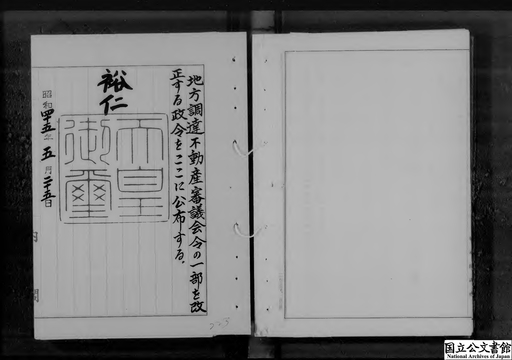 地方調達不動産審議会令の一部を改
正する政令をここに公布する。
裕仁
天皇御璽
昭和四十五年五月二十五日
内閣
国立公文書館
National Archives of Japan